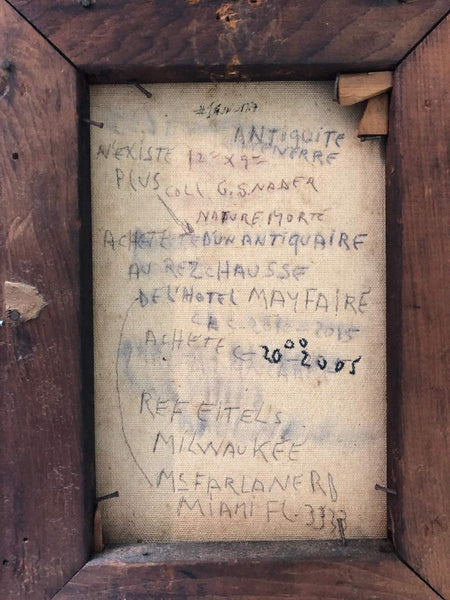 ANTIQUITE
N'EXISTE 12" x 9"
PLUS COLL. G.S. NADER
NATURE MORTE
ACHETE D'UN ANTIQUAIRE
AU REZ CHAUSSE
DE L'HOTEL MAYFAIRE
ACHETE 20 00 2005
REF EITEL'S
MILWAUKEE
McFARLANE RD
MIAMI FL. 3333